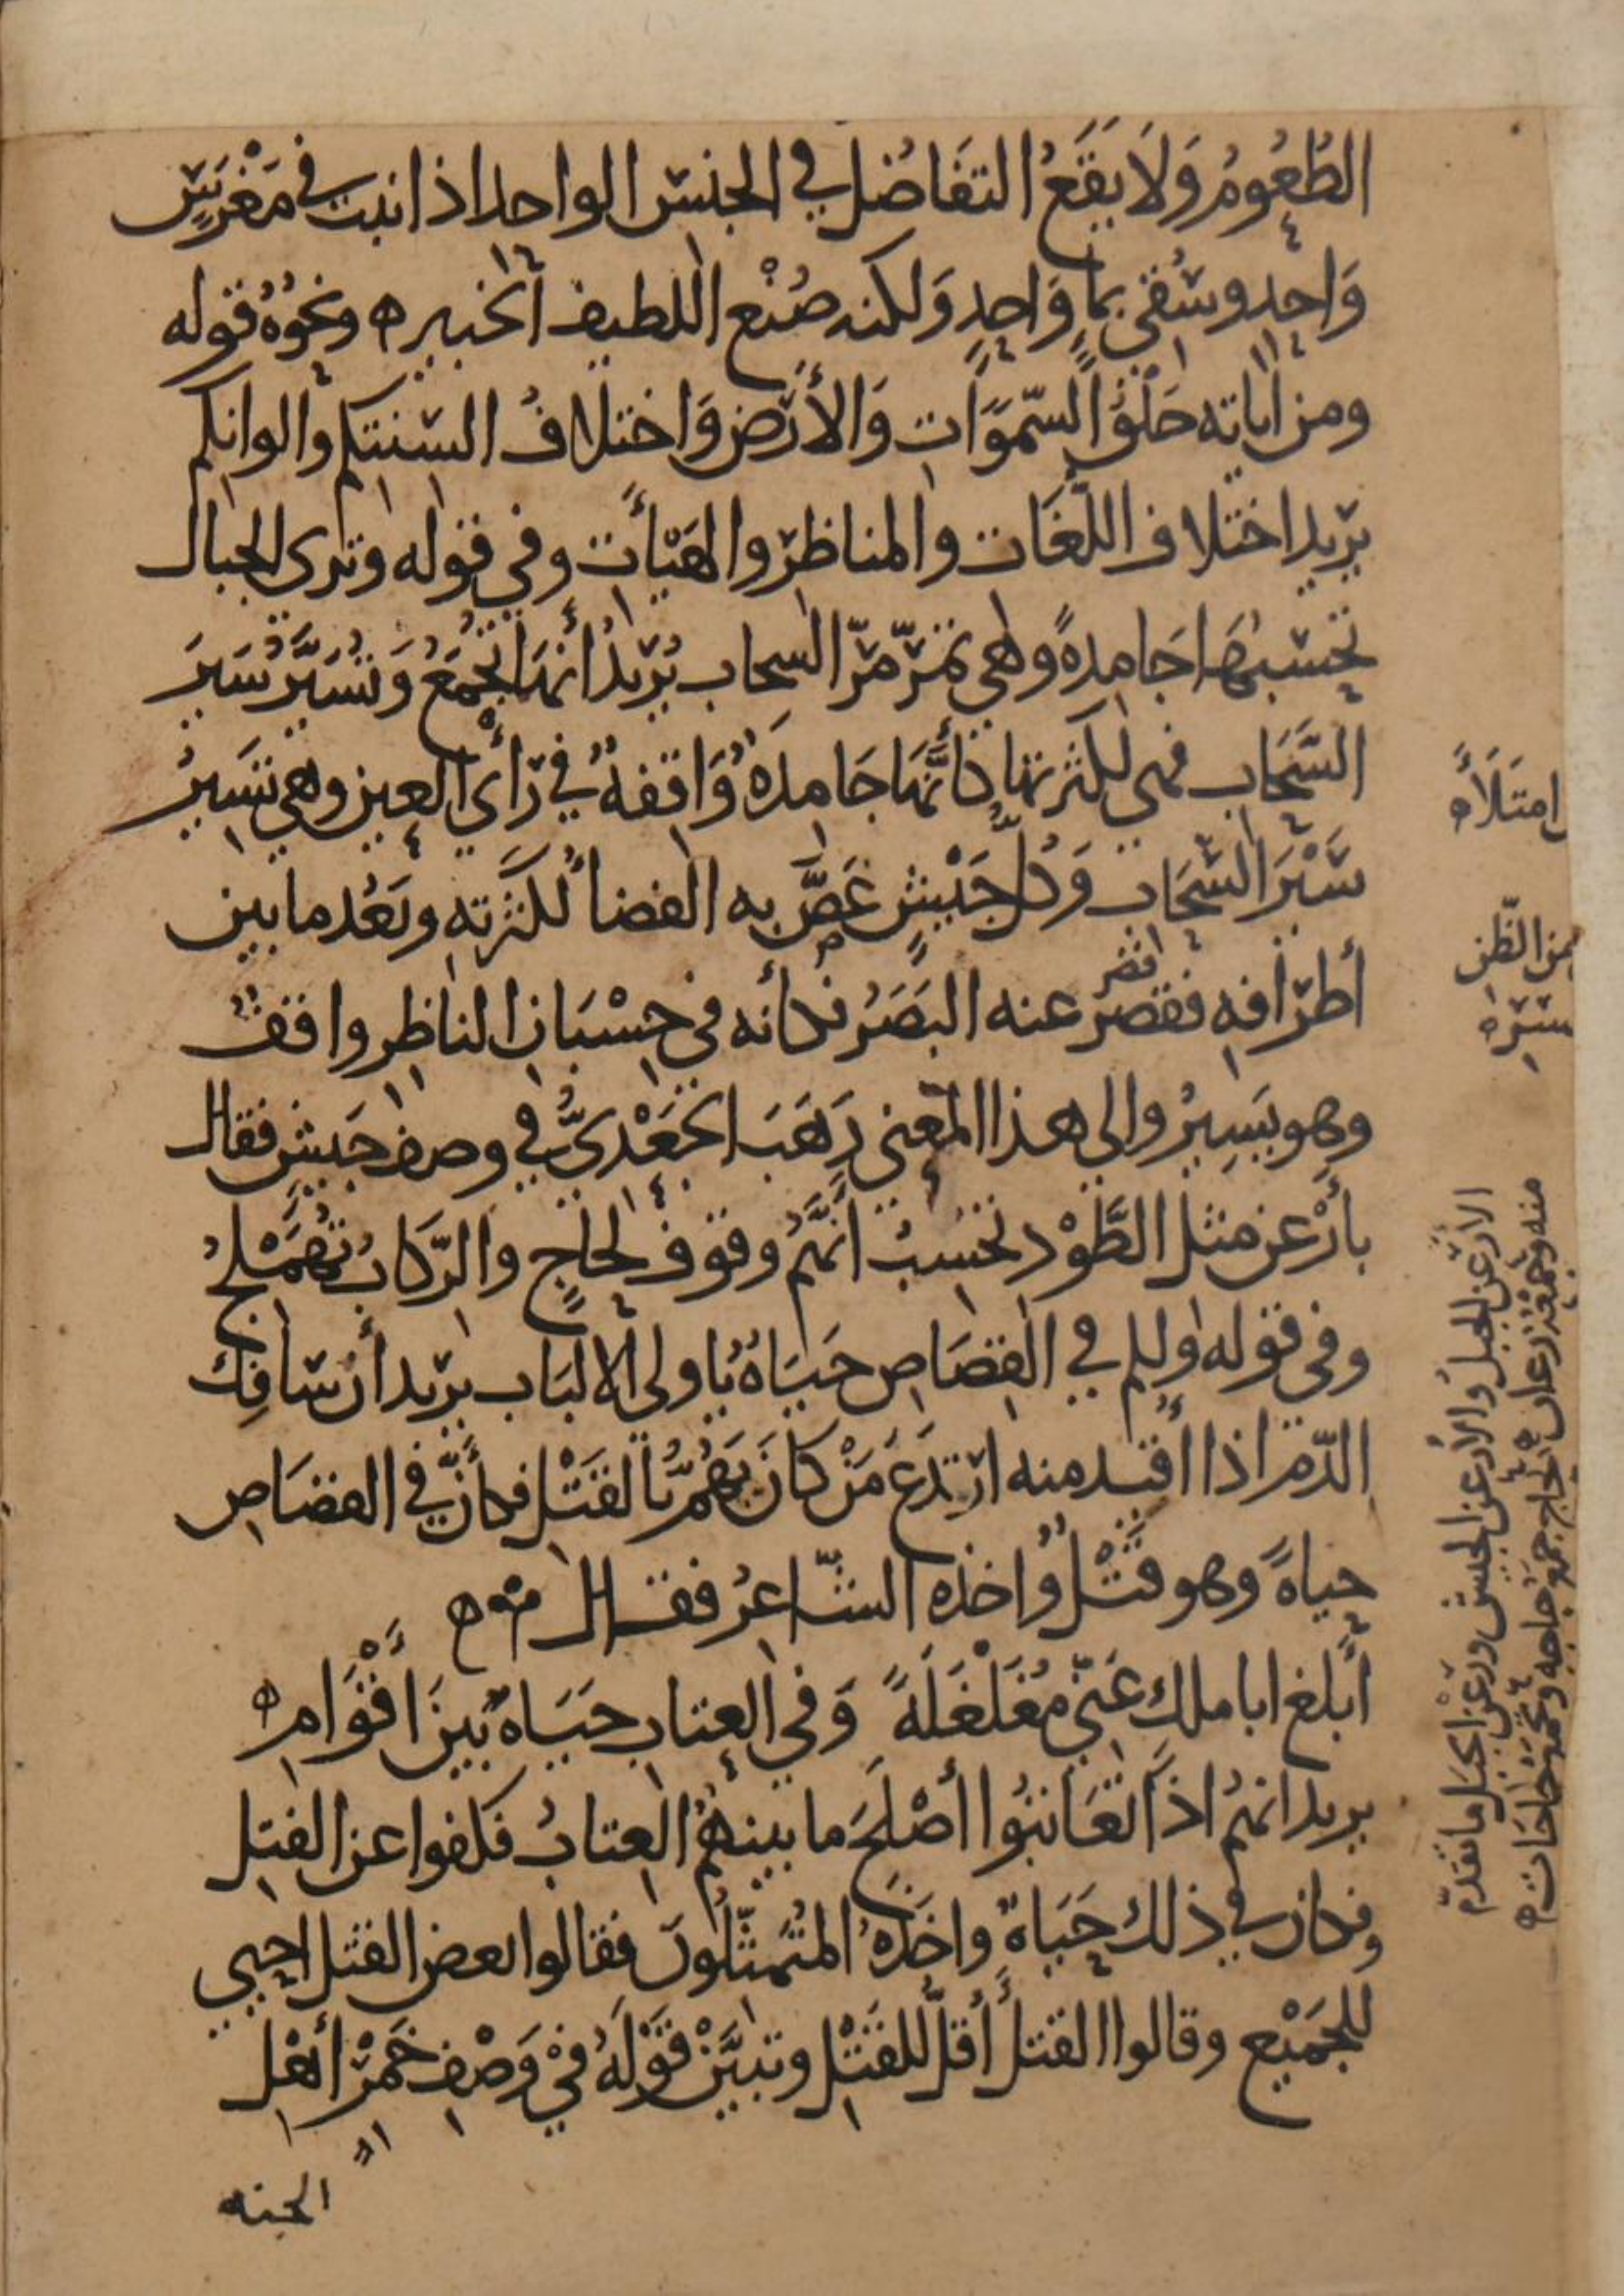 الطُعُومُ وَلَا يَقَعُ التفَاضُل في الجنس الواحد اذا نبت في مَغْرَسٍ
وَاحِدٍ وسُقى بماٍ وَاحِدٍ وَلكنه صُنْع اللطيف الخبير ه ونحوُهُ قوله
ومن اياته خَلْقُ السّموَات وَالأرَض وَاختلافُ السنتكم والوانكم
يريد اختلاف اللّغَات والمناظر والهَيْأَت وفي قوله وترى الجبال
تحسبهَا جَامدةً وهي تمرّ مرّ السحاب يُريدُ أنهَا تُجْمَعُ وَتُسَيَّرُ سَيرَ
السَّحَاب فهى لكثرتها كأنَّهَا جَامدَةٌ وَاقفةٌ في رَأى العين وهي تَسيرُ
سَيْرَ السَّحَاب وَكلُّ جَيْشٍ غَصَّ به الفضاُ لكثرته وبَعُد ما بين
أطرافه فقصر قصر عنه البَصَرُ فكأنه في حِسْبَان الناظر واقف
وهو يَسِيرُ والى هذا المعنى ذَهَبَ الجَعْدىُّ في وصف جَيش فقال
بأَرْعن مثل الطَّوْد تحسبُ انَّهُم وقوف لحاجٍ والرّكابُ تُهَمْلجُ
وفى قوله ولكم في القصَاص حَيَاةٌ ياولى الالبَاب يريد أن سَافِك
الدّم اذا أقيد منه ارتدَعَ مَنْ كانَ يَهُمُّ بالقَتْل فكأنَّ في القصَاص
حياةً وهو قَتْلٌ واخذه الشَّاعرُ فقال ه
أبلغ ابا ملكٍ عَنّي مُغَلْغَلَةً وَفي العتاب حَيَاةٌ بينَ اقْوَام ه
يريد انهُم اذا تعَاتبُوا أصْلَحَ ما بينهُمُ العِتابُ فكفوا عن القتل
وكان في ذلك حَيَاةٌ واخَذَهُ المُتَمثّلُونَ فقالوا بعض القتل احيى
للجَمْيع وقالوا القتلُ أقلُّ للقَتْل وتبيَّنْ قَوْلَهُ فيْ وَصْف خَمْر أهْل
الجنه
امتَلَأ ه
من الظّن
سَيْرَه
الأرْعَن الجبلُ والأرعن الجيش ورَعْن الجبَل ما تقدّم
منه وجَمْعُهُ رعان ه الحاج جمع حاجه وتُجْمَعُ حَاجَات ه